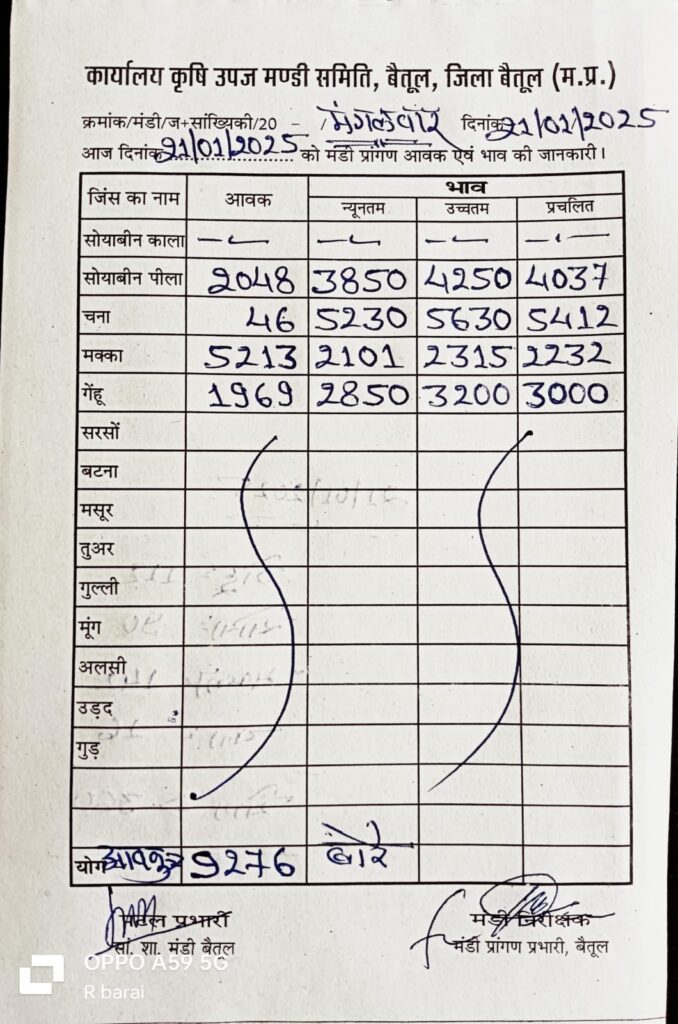 कार्यालय कृषि उपज मण्डी समिति, बैतूल, जिला बैतूल (म.प्र.)
क्रमांक/मंडी/ज+सांख्यिकी/20 - / मंगलवार दिनांक 21/01/2025
आज दिनांक 21/01/2025 को मंडी प्रांगण आवक एवं भाव की जानकारी।
जिंस का नाम आवक भाव
न्यूनतम उच्चतम प्रचलित
सोयाबीन काला — — — —
सोयाबीन पीला 2048 3850 4250 4037
चना 46 5230 5630 5412
मक्का 5213 2101 2315 2232
गेंहू 1969 2850 3200 3000
सरसों
बटना
मसूर
तुअर
गुल्ली
मूंग
अलसी
उड़द
गुड़
योग 9276 बोरे
प्रभारी मंडी निरीक्षक
सां. शा. मंडी बैतूल मंडी प्रांगण प्रभारी, बैतूल
OPPO A59 5G
R barai